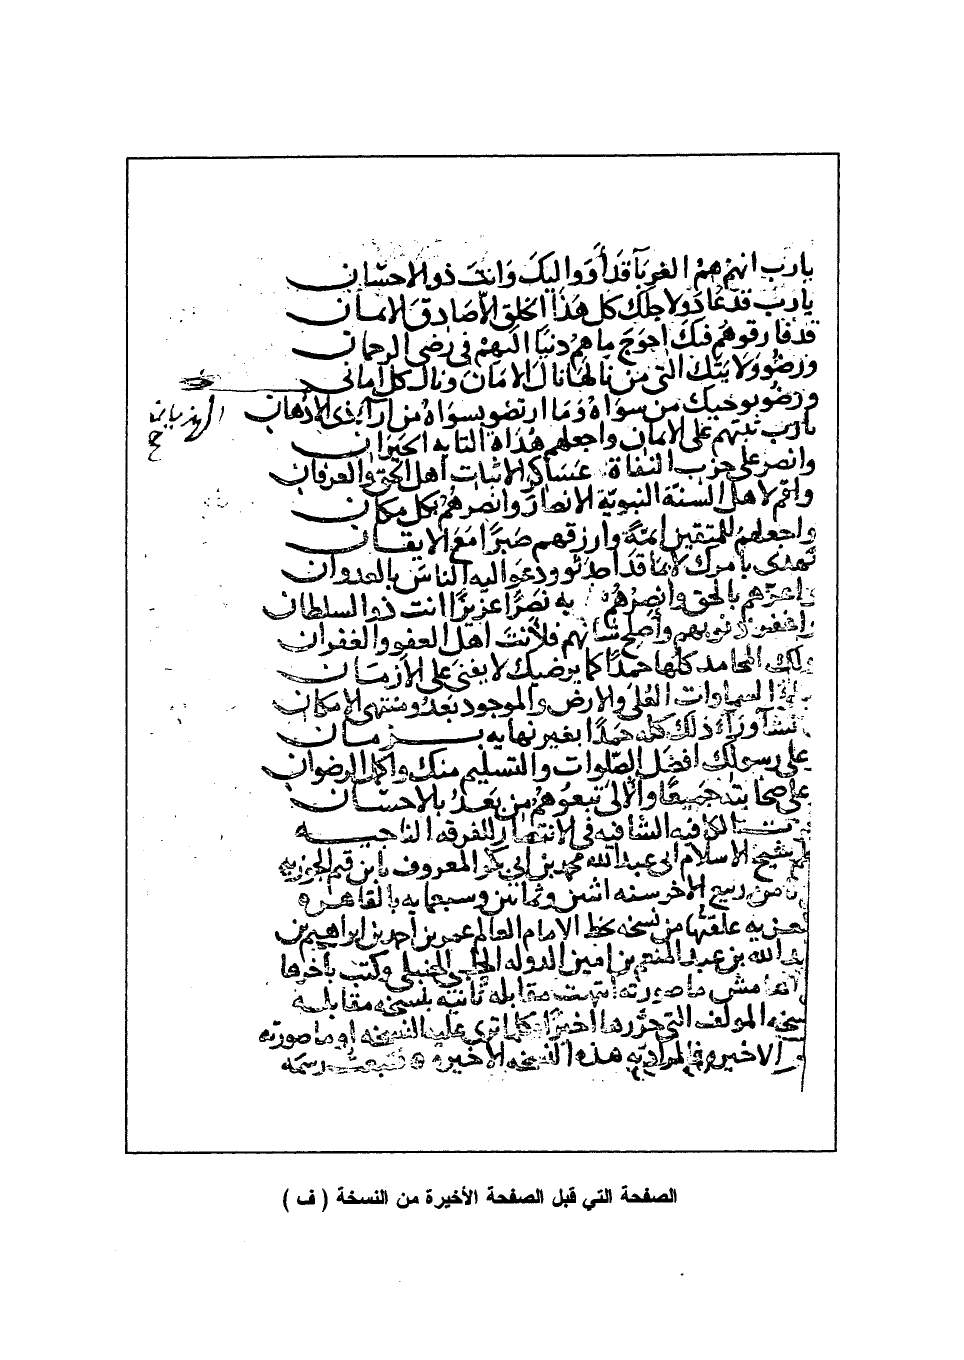 يارب انهم هم الغربآ قد أووا اليك وانت ذو الاحسان
يارب قد عادوا لاجلك كل هذا الخلق الا صادق الايمان
قد فارقوهم فيك احوج ما هم دنيا اليهم في رضى الرحمان
ورضوا ولايتك التي من نالها نال الامان ونال كل اماني
ورضوا بوحيك من سواه وما ارتضوا بسواه من ارآء ذي الاذهان
الهذيان
خ
يارب ثبتهم على الايمان واجعلهم هداة التايه الحيران
وانصر على حزب النفاة عساكر الاثبات اهل الحق والعرفان
واقم لاهل السنة النبوية الانصار وانصرهم بكل مكان
واجعلهم للمتقين ايمة وارزقهم صبرا مع الايقان
تهدى بامرك لا بما قد احدثوا ودعوا اليه الناس بالعدوان
واعزهم بالحق وانصرهم به نصرا عزيزا انت ذو السلطان
واغفر ذنوبهم وأصلح شانهم فلأنت اهل العفو والغفران
ولك المحامد كلها حمدا كما يرضيك لا يفنى على الازمان
السماوات العلى والارض والموجود بعد ومنتهى الامكان
تشآ ورآء ذلك كله حمدا بغير نهايه بزمان
على رسولك افضل الصلوات والتسليم منك واكمل الرضوان
على صحابته جميعا والالى تبعوهم من بعد بالاحسان
الكافيه الشافيه في الانتصار للفرقه الناجيه
شيخ الاسلام ابي عبد الله محمد بن ابي بكر المعروف بابن قيم الجوزيه
ثامن ربيع الاخر سنه اثنين وثمانين وسبعمايه بالقاهره
المعزيه علقتها من نسخه بخط الامام العالم عمر بن احمد بن ابراهيم بن
عبد الله بن عبد المنعم بن امين الدوله الحلبي الحنبلي وكتب باخرها
الهامش ما صورته انتهت مقابله ثانيه بنسخه مقابله
نسخه المولف التي حررها اخيرا وكلما ترى عليه النسخه او ما صورته
الاخيره فالمراد به هذه النسخه الاخيره فتبعت رسمه
الصفحة التي قبل الصفحة الأخيرة من النسخة ( ف )